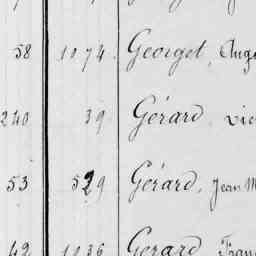 58 1074 Georget, Aug
240 39 Gérard, Vic
53 529 Gérard, Jean M
42 1036 Gerard Fran